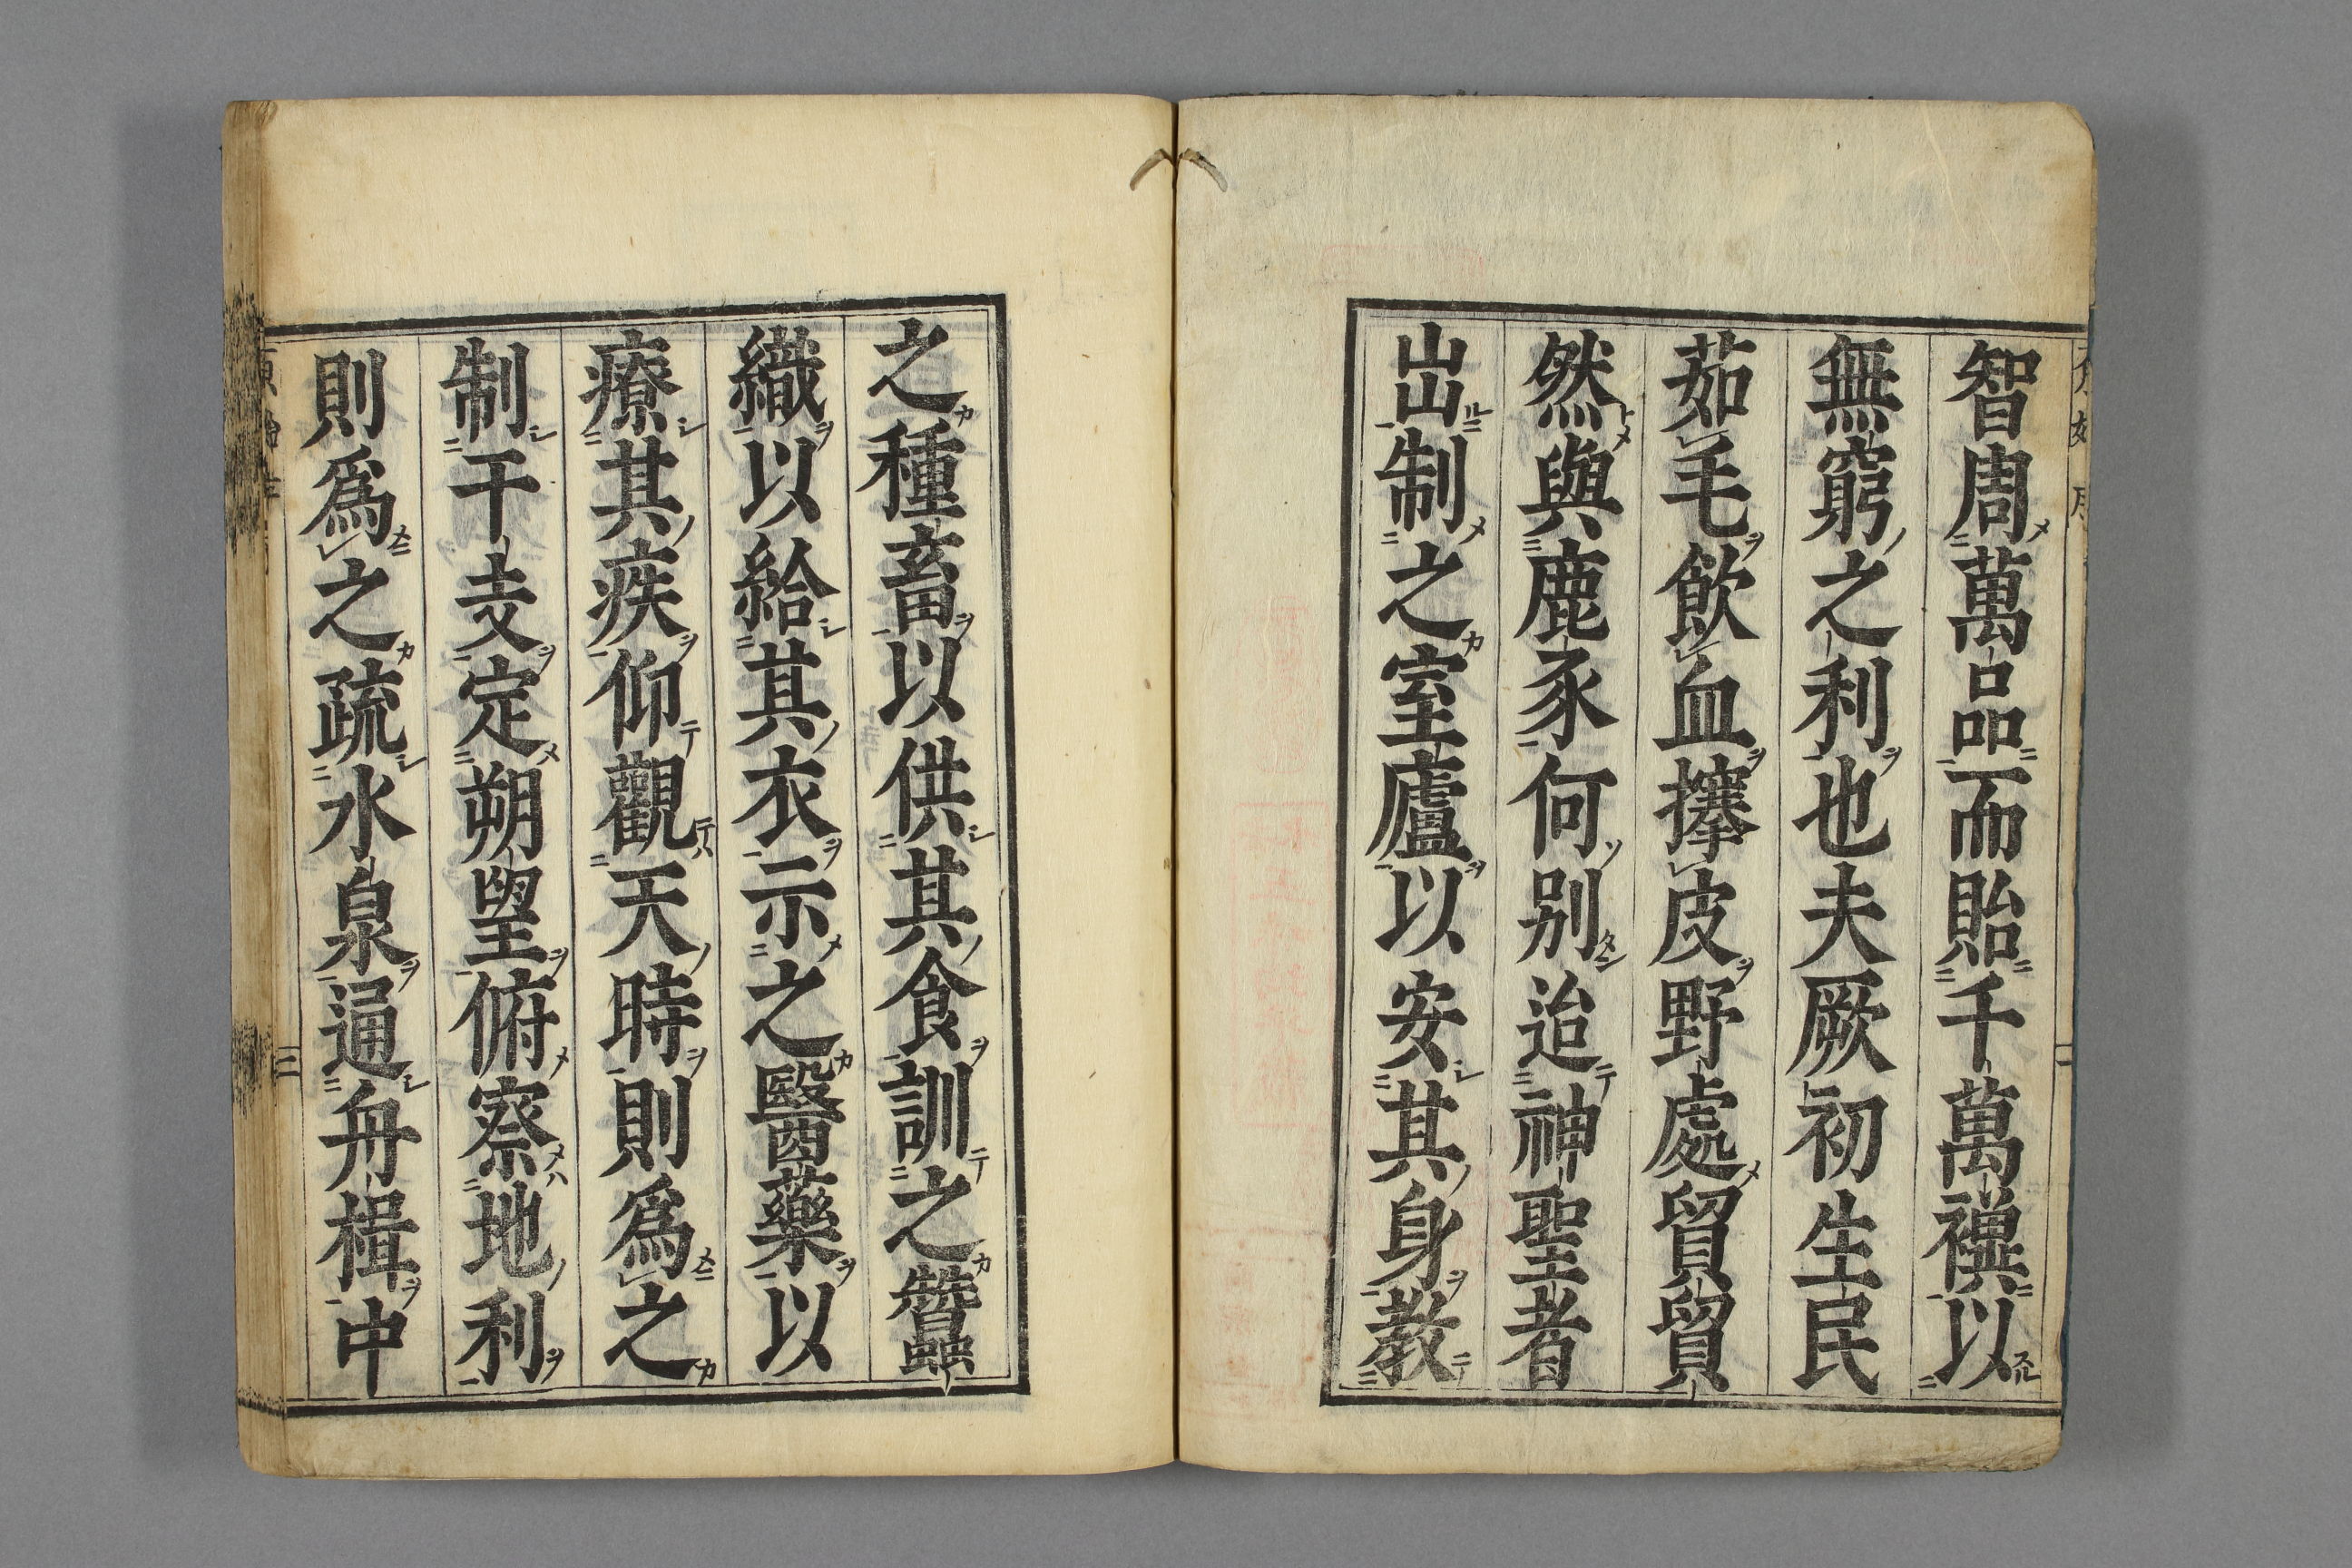 智周萬品而貽千萬禩以
無窮之利也夫厥初生民
茹毛飲血攓皮野處貿貿
然與鹿豕何别迨神聖者
出制之室廬以安其身教
之種畜以供其食訓之蠶
織以給其衣示之醫藥以
療其疾仰觀天時則爲之
制干支定朔望俯察地利
則爲之疏水泉通舟楫中